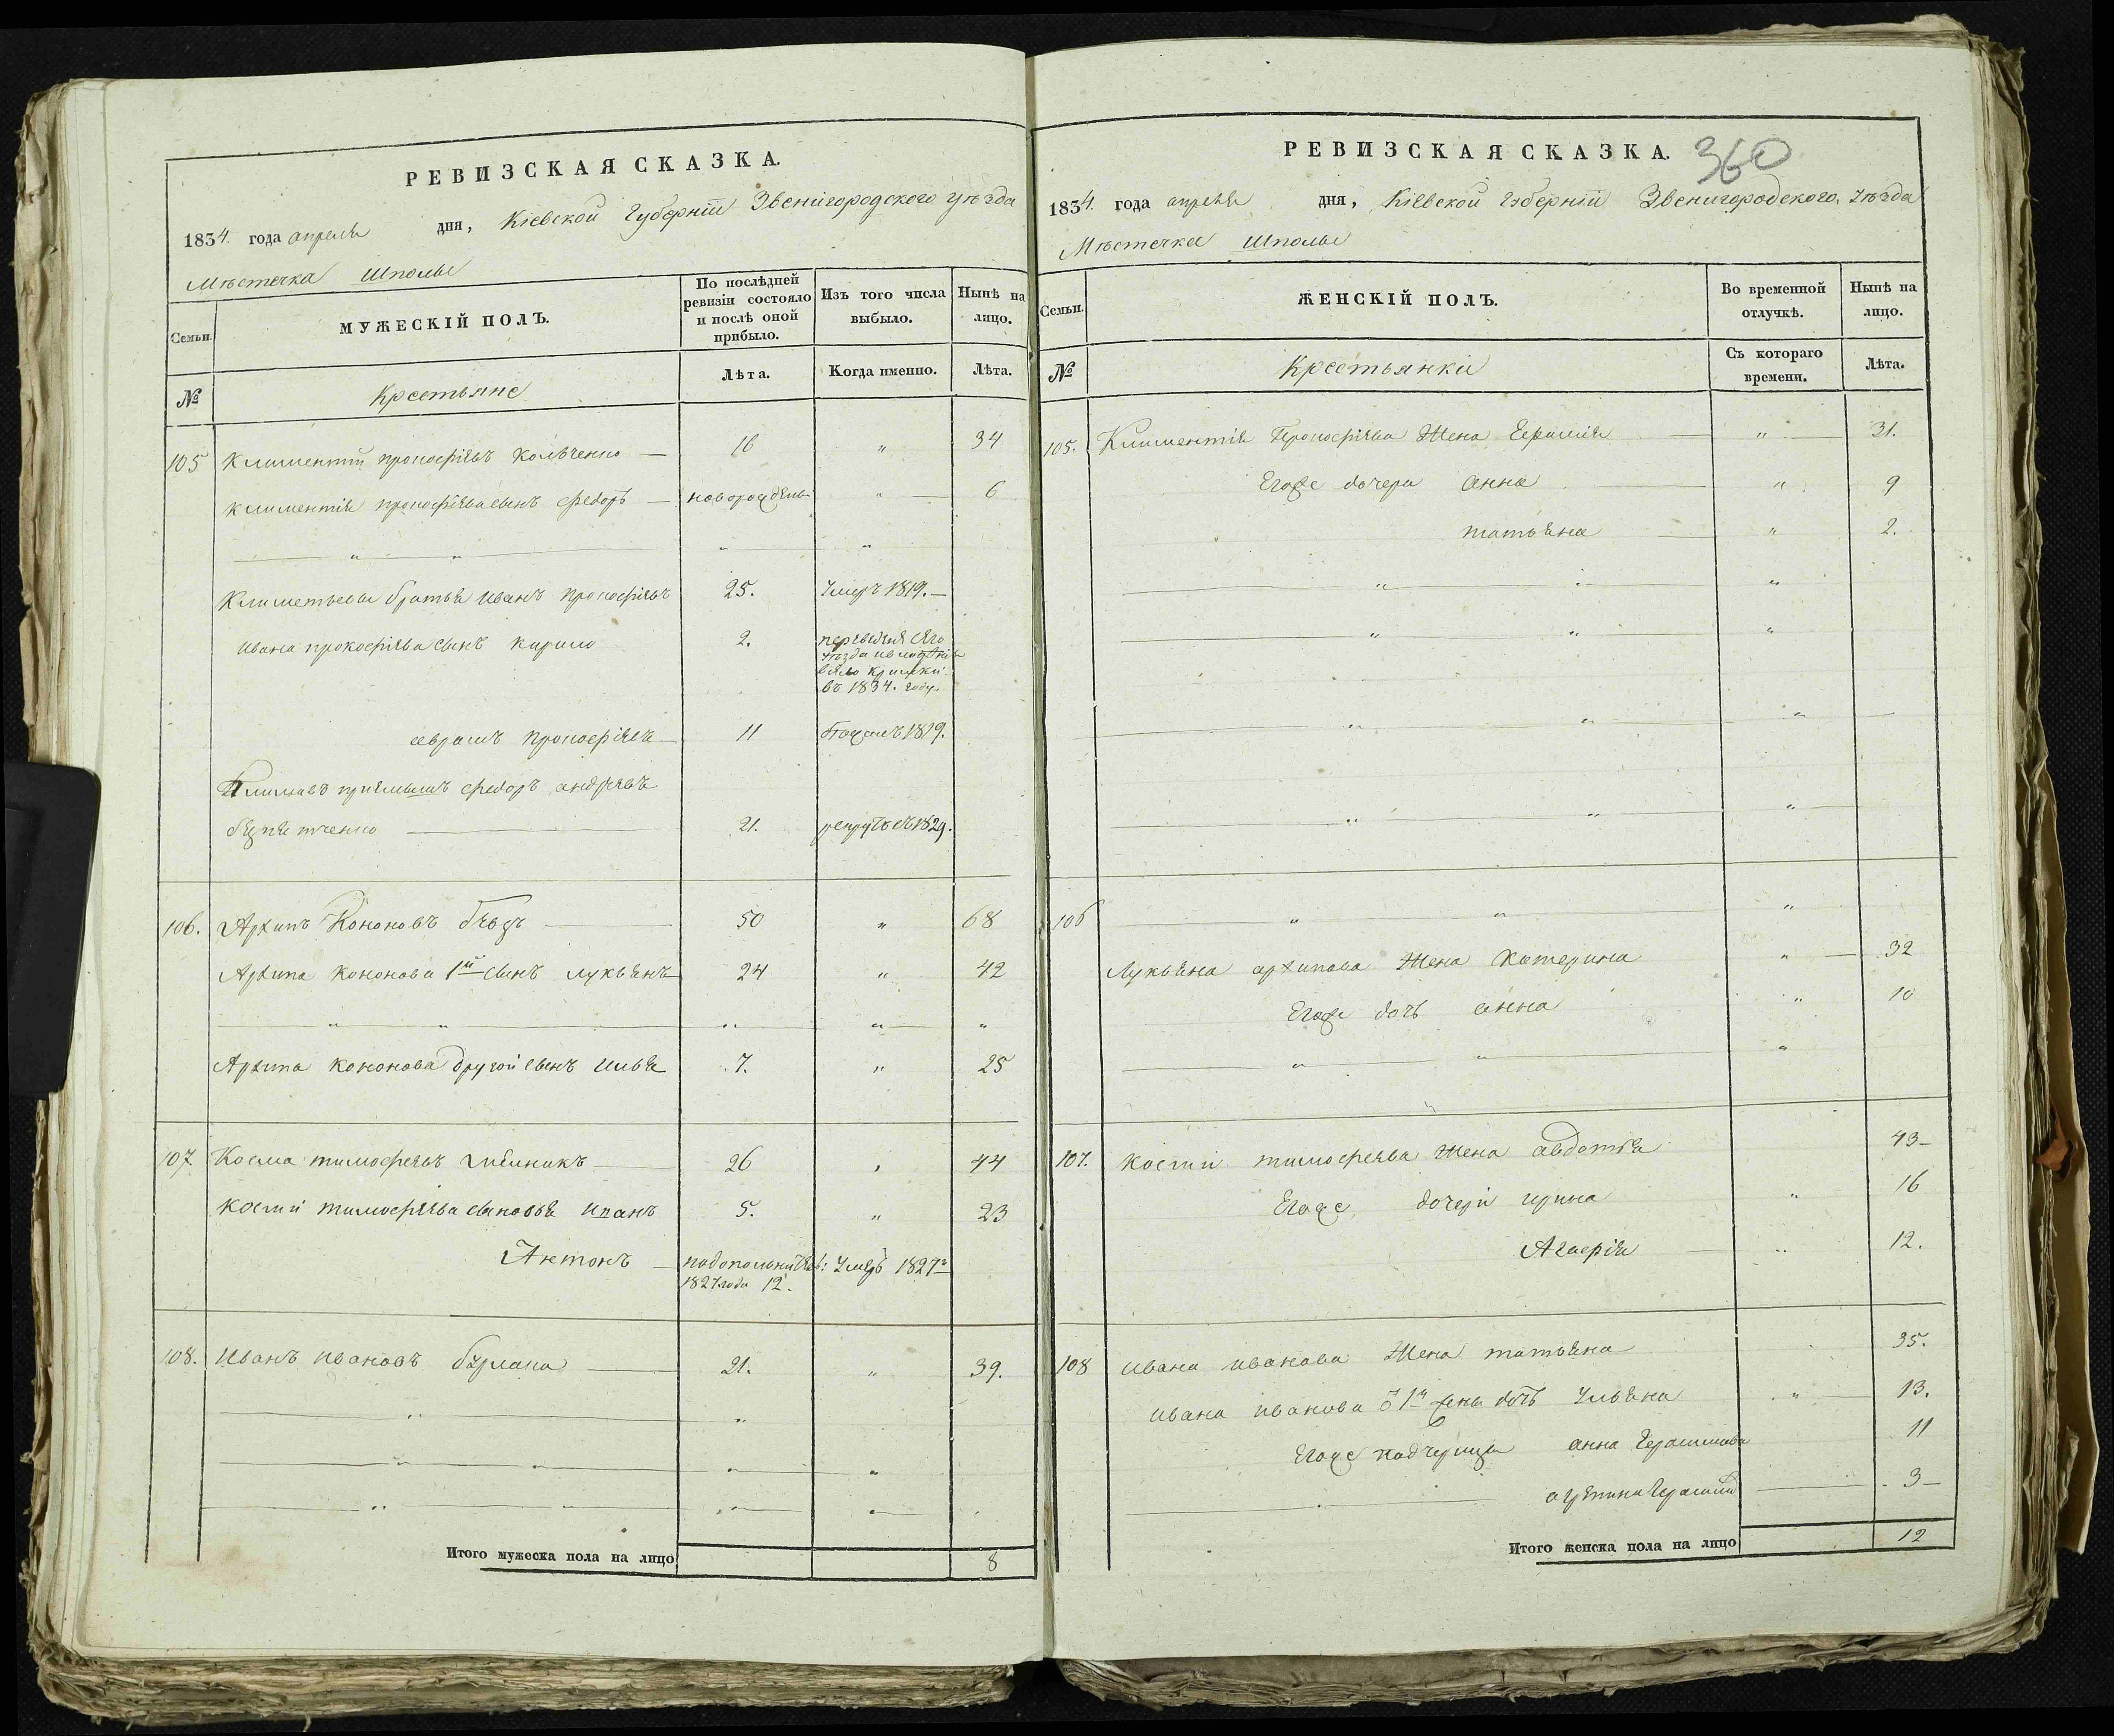 РЕВИЗСКАЯ СКАЗКА.
1834. года апреля дня, Кіевской Губерніи Звенигородского уѣзда
Мѣстечка Шполы
Семьи.
МУЖЕСКІЙ ПОЛЪ.
По послѣдней ревизіи состояло и послѣ оной прибыло.
Изъ того числа выбыло.
Нынѣ на лицо.
№
Крестьяне
Лѣта.
Когда именно.
Лѣта.
105 Климентій прокофіявъ 16 " 34
Климентія прокофіява сынъ федоръ " 6
" " " "
братья иванъ прокофіявъ 25. Умеръ 1819.
Ивана прокофіява сынъ Кирило 2.
въ 1834. году.
прокофіявъ 11 1819.
федоръ андреявъ
21. 1829.
106. Архипъ Кононовъ 50 " 68
Архипа Кононова 1й сынъ лукьянъ 24 " 42
" " " " "
Архипа Кононова другой сынъ илья 7. " 25
107. Косма тимофеявъ 26 " 44
Косми тимофеява сыновья иванъ 5. " 23
Антонъ 1827 года 12. Умеръ 1827г
108. Иванъ ивановъ бурлака 21. " 39.
" "
" " " "
" " " "
Итого мужеска пола на лицо 8
РЕВИЗСКАЯ СКАЗКА. 360
1834. года апреля дня, Кіевской Губерніи Звенигородского, Уѣзда
Мѣстечка Шполы
Семьи.
ЖЕНСКІЙ ПОЛЪ.
Во временной отлучкѣ.
Нынѣ на лицо.
№
Крестьянки
Съ котораго времени.
Лѣта.
105. Климентія Прокофіява Жена " 31.
Егоже дочери анна " 9
татьяна " 2.
" " "
" " "
" " "
" " "
106 " " "
Лукьяна архипова Жена Катерина " 32
Егоже дочь анна " 10
" " "
107. Косми тимофеява Жена авдотья 43
Егоже дочери ирина " 16
Агафія " 12.
108 Ивана иванова Жена татьяна 35.
Ивана иванова 1й жены дочь Ульяна " 13.
Егоже падчерицы анна Герасимова 11
3
Итого женска пола на лицо 12